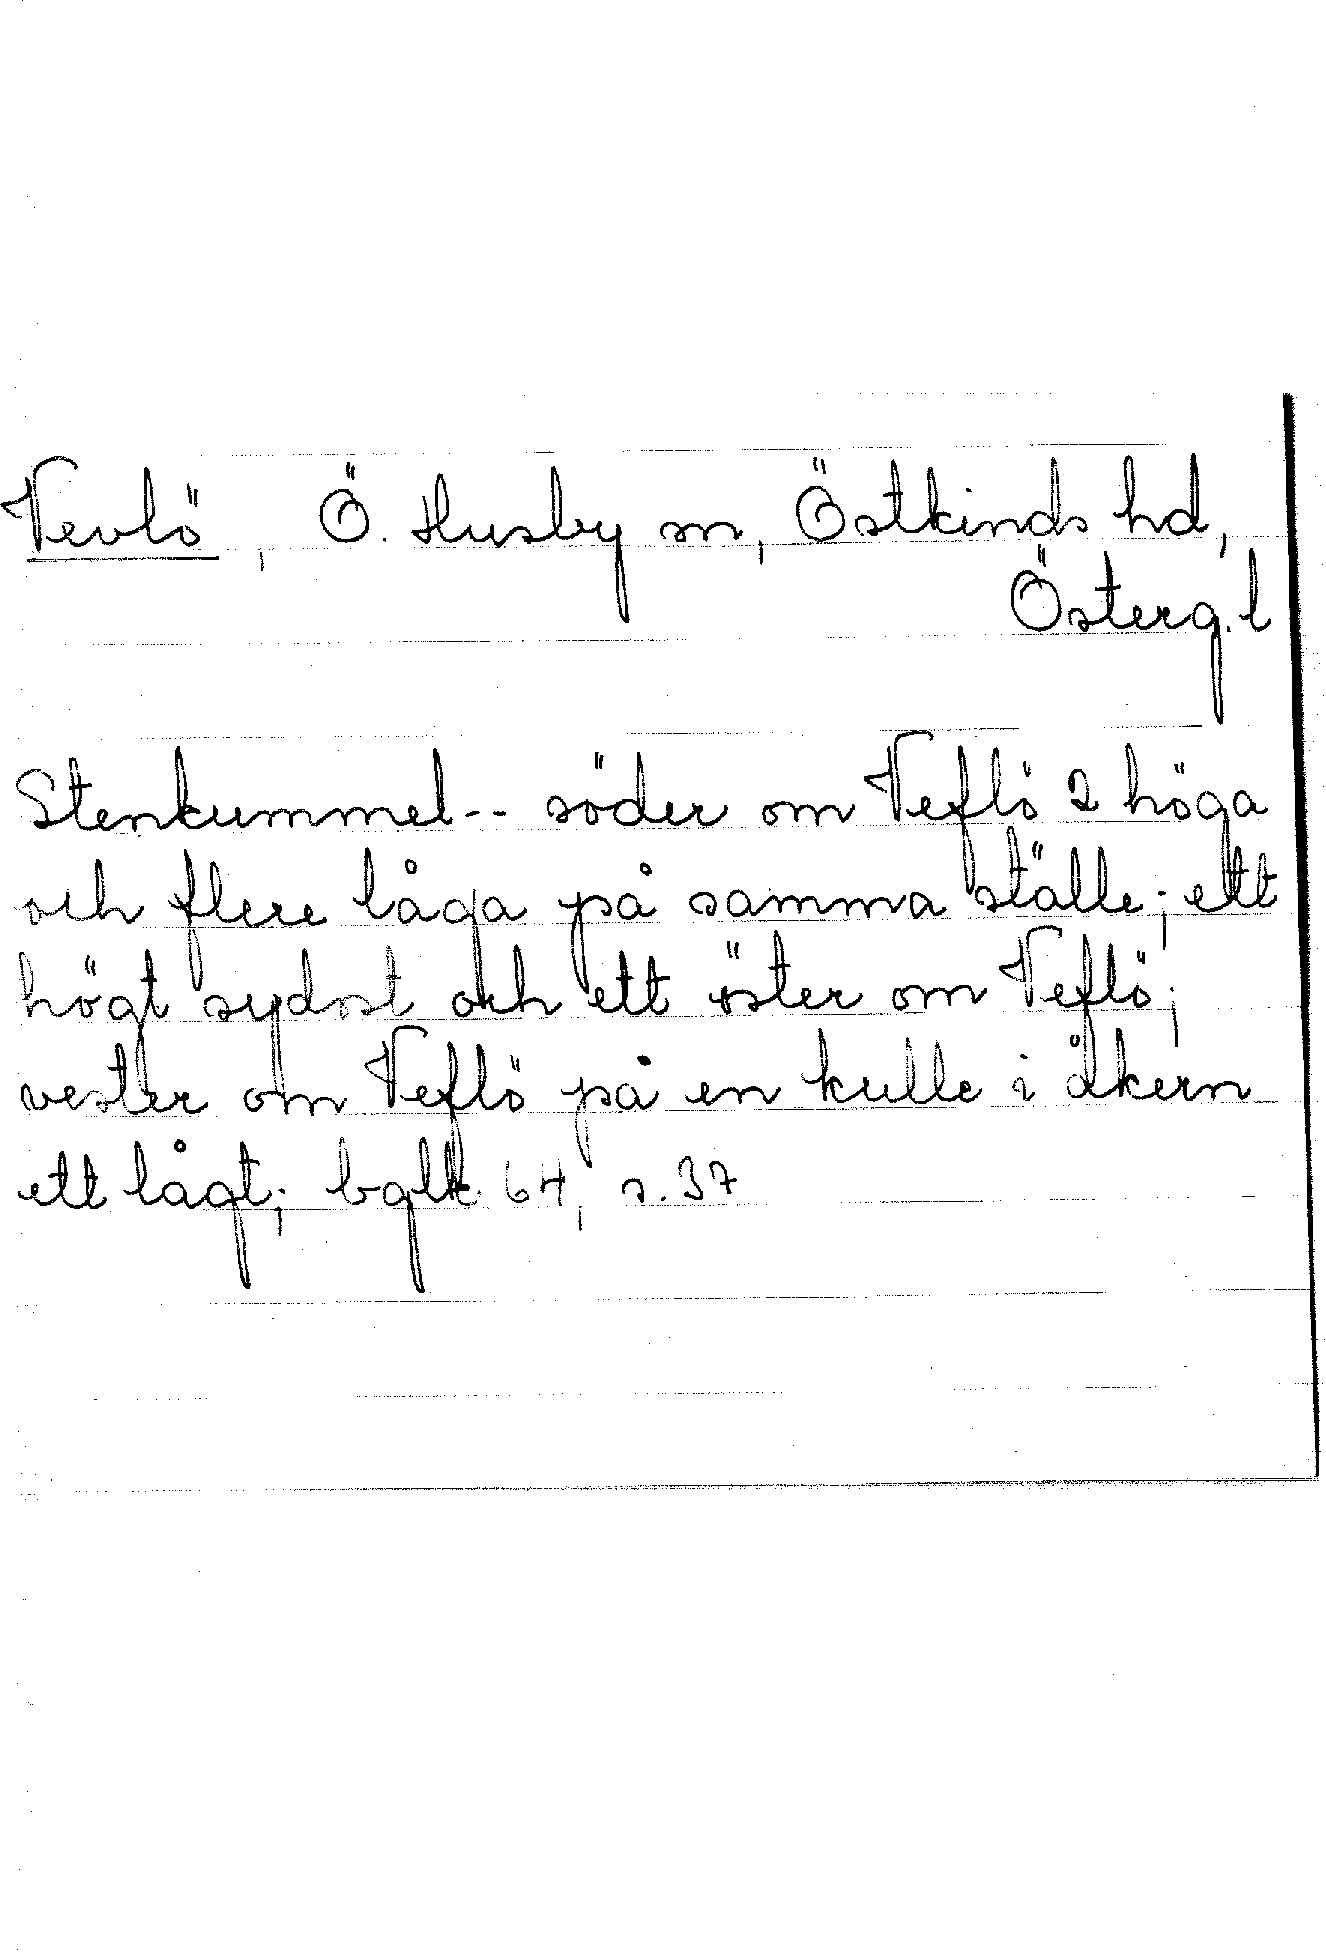 Vevlö, Ö. Husby sn, Östkinds hd,
Österg. l
Stenkummel-- söder om Veflö 2 höga
och flere låga på samma ställe; ett
högt sydost och ett öster om Veflö;
vester om Veflö på en kulle i åkern
ett lågt; bglk 64, s. 37